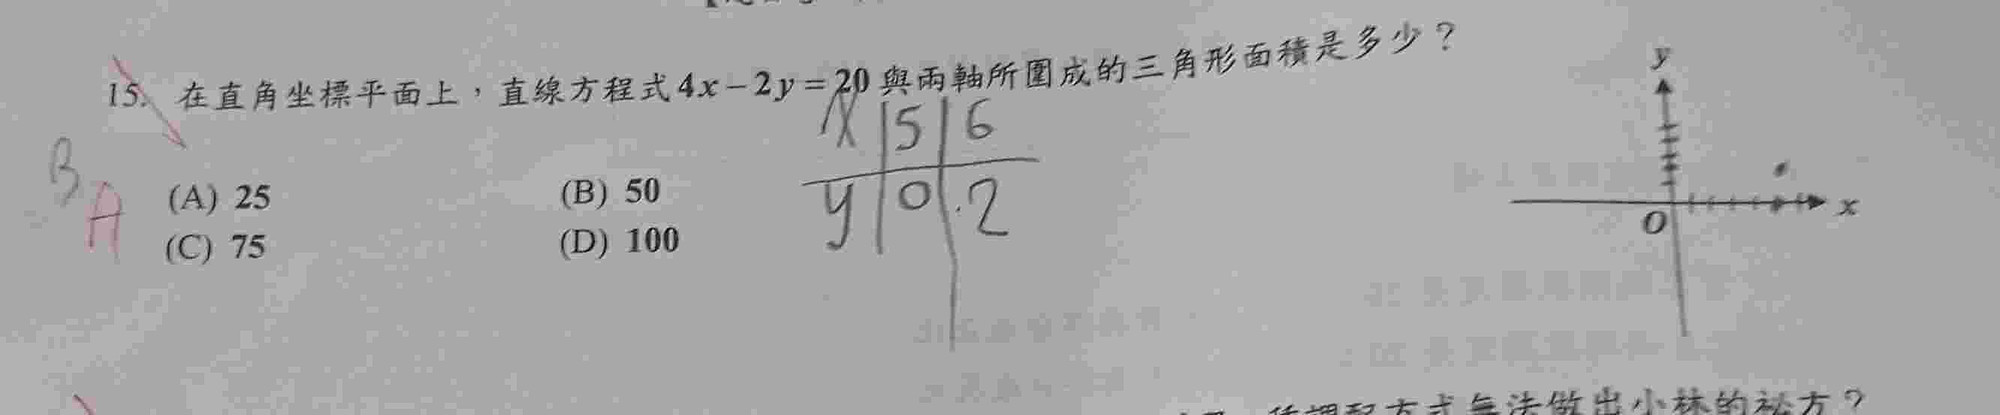 15. 在直角坐標平面上,直線方程式 4x－2y＝20 與兩軸所圍成的三角形面積是多少？
B A
(A) 25 (B) 50
(C) 75 (D) 100
x 5 6
y 0 2
y
O x
種調配方式無法做出小林的祕方？